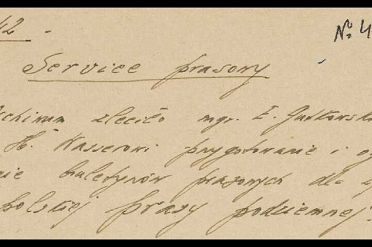 42 -
№ 4
Service prasowy
zleciło mgr. E. Gutkowski
H. Wasserowi przygotowanie i
nie biuletynów prasowych dla
polskiej prasy podziemnej